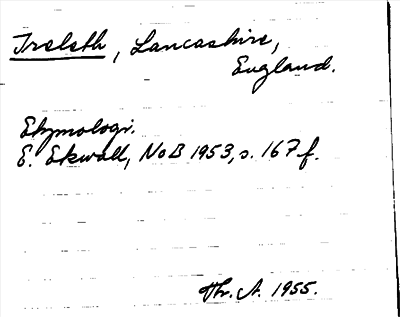 Treleth, Lancashire,
England.
Etymologi.
E. Ekwall, NoB 1953, s. 167 f.
Hr. A. 1955.